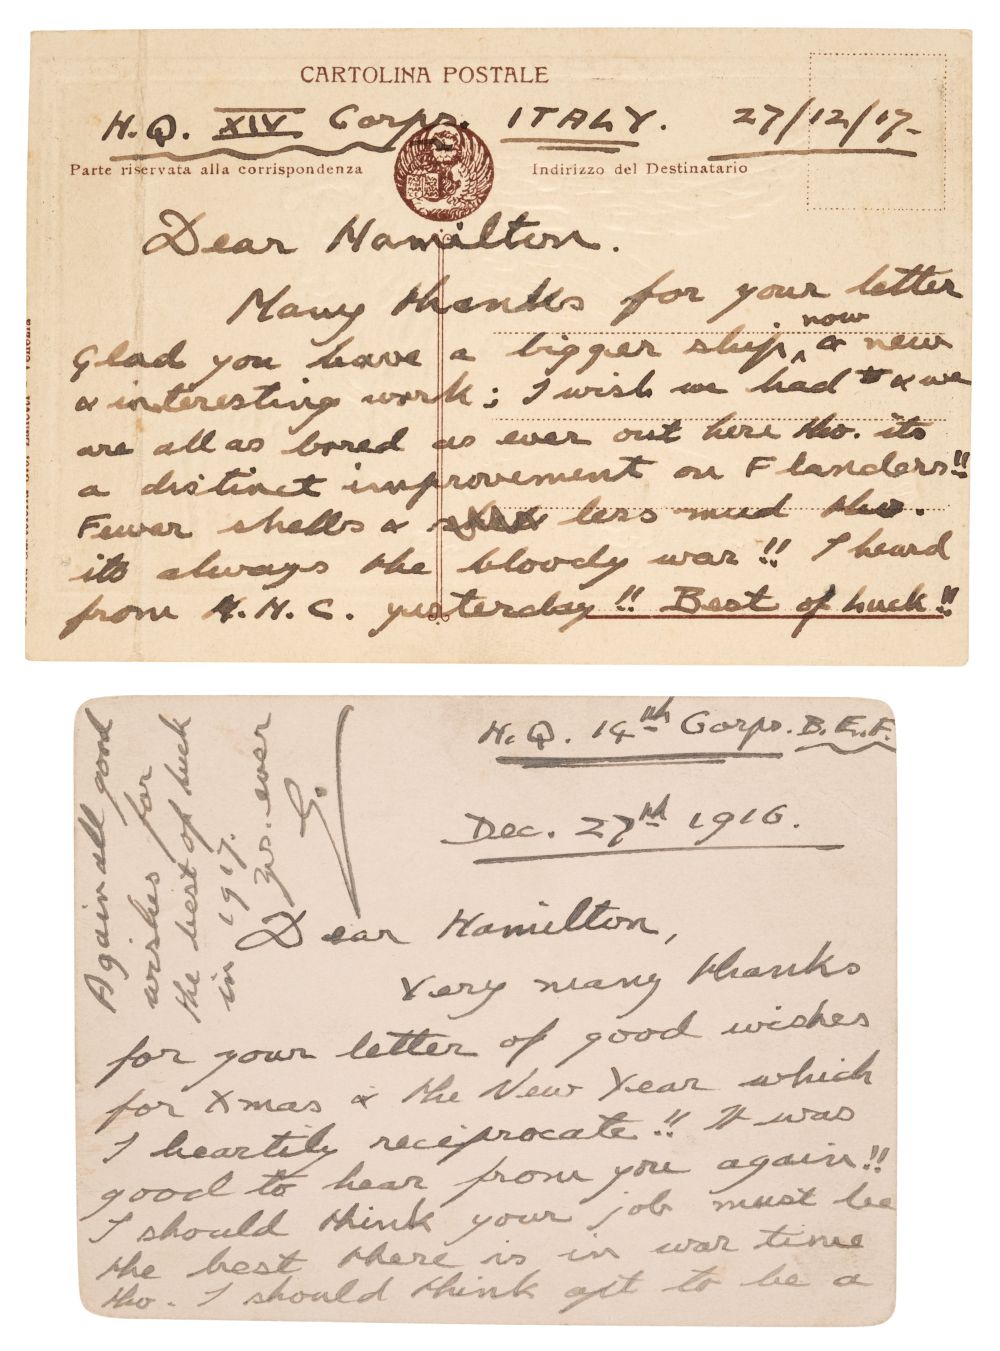 CARTOLINA POSTALE
H.Q. XIV Corps. ITALY. 27/12/17.
Parte riservata alla corrispondenza
Indirizzo del Destinatario
Dear Hamilton.
Many thanks for your letter
Glad you have a bigger ship, now & new
& interesting work; I wish we had & we
are all as bored as ever out here tho. its
a distinct improvement on Flanders!!
Fewer shells & less mud tho.
its always the bloody war!! I heard
from H.H.C. yesterday!! Best of luck!!
H.Q. 14th Corps. B.E.F.
Dec. 27th 1916.
Dear Hamilton,
Very many thanks
for your letter of good wishes
for Xmas & the New Year which
I heartily reciprocate!! It was
good to hear from you again!!
I should think your job must be
the best there is in war time
tho. I should think apt to be a
Again all good
wishes for
the best of luck
in 1917.
Yrs. ever
G.